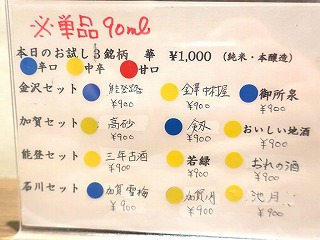 ※単品90ml
本日のお試し3銘柄 華 ¥1,000 (純米・本醸造)
辛口 中辛 甘口
金沢セット 能登路 金澤中村屋 御所泉
¥900 ¥900 ¥900
加賀セット 高砂 釼 おいしい地酒
¥900 ¥900 ¥900
能登セット 三年古酒 若緑 おれの酒
¥900 ¥900 ¥900
石川セット 加賀雪梅 加賀月 池月
¥900 ¥900 ¥900